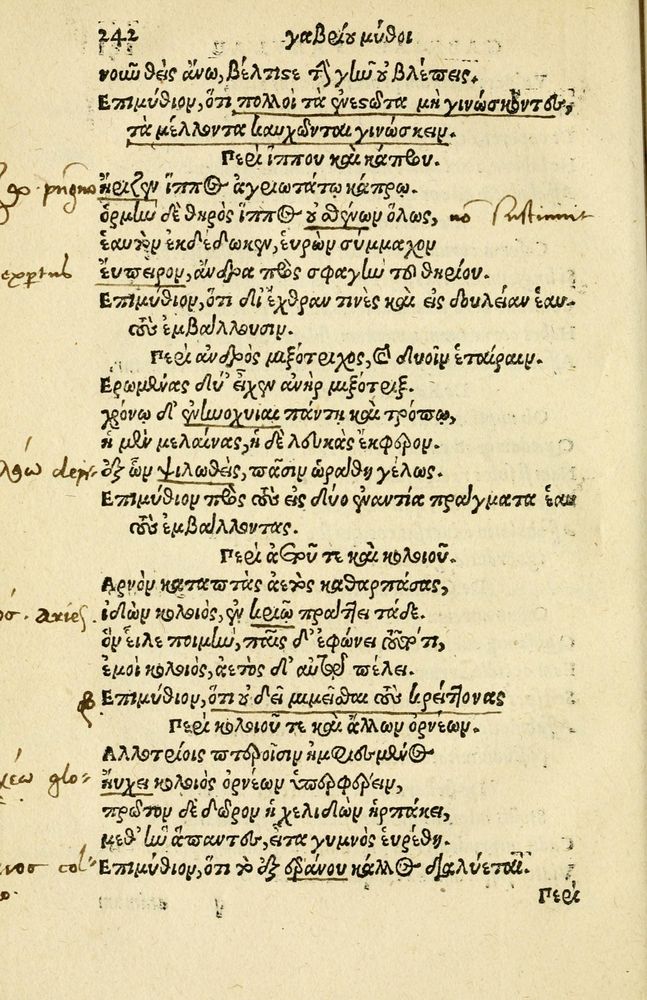 242 γαβρίου μύθοι
νοιωθεὶς ἄνω, βέλτιστε τὴν γῆν οὐ βλέπεις.
Επιμύθιον, ὅτι πολλοὶ τὰ ἐνεστῶτα μὴ γινώσκοντες,
τὰ μέλλοντα καυχῶνται γινώσκειν.
Περὶ ἵππου καὶ κάπρου.
go pugno ἤριζεν ἵππος ἀγριωτάτω κάπρω.
ὁρμὴν δὲ θηρὸς ἵππος οὐ σθένων ὅλως, no sustinuit
ἑαυτὸν ἐκδέδωκεν, εὑρὼν σύμμαχον
expertus ἔμπειρον, ἄνδρα πρὸς σφαγὴν τοῦ θηρίου.
Επιμύθιον, ὅτι δι' ἔχθραν τινὲς καὶ εἰς δουλείαν ἑαυ-
τοὺς ἐμβάλλουσιν.
Περὶ ἀνδρὸς μιξότριχος, καὶ δυοῖν ἑταίραιν.
Ερωμένας δύ' εἶχεν ἀνὴρ μιξότριξ.
χρόνω δ' ἐνηνοχυίαι πάντη καὶ τρόπω,
ἡ μὲν μελαίνας, ἡ δὲ λευκὰς ἔκφερον.
ἐξ ὧν ψιλωθεὶς, πᾶσιν ὡράθη γέλως.
Επιμύθιον πρὸς τοὺς εἰς δύο ἐναντία πράγματα ἑαυ
τοὺς ἐμβάλλοντας.
Περὶ ἀετοῦ τε καὶ κολοιοῦ.
Αρνὸν καταπτὰς ἀετὸς καθαρπάσας,
aries. ἰδὼν κολοιὸς, ἐν κριῷ πράττει τάδε.
ὃν εἷλε ποιμὴν, παῖς δ' ἐφώνει τοῦτ' τί,
ἐμοὶ κολοιὸς, ἀετὸς δ' αὑτῷ πέλει.
Επιμύθιον, ὅτι οὐ δεῖ μιμεῖσθαι τοὺς κρείττονας
Περὶ κολοιοῦ τε καὶ ἄλλων ὀρνέων.
Αλλοτρίοις πτεροῖσιν ἠμφιεσμένος
ηὔχει κολοιὸς ὀρνέων ὑπερφέρειν,
πρῶτον δὲ δῶρον ἡ χελιδὼν ἡρπάκει,
μεθ' ἣν ἅπαντες, εἶτα γυμνὸς εὑρέθη.
Επιμύθιον, ὅτι τὸ ἐξ ἐράνου κάλλος διαλύεται.
Περὶ